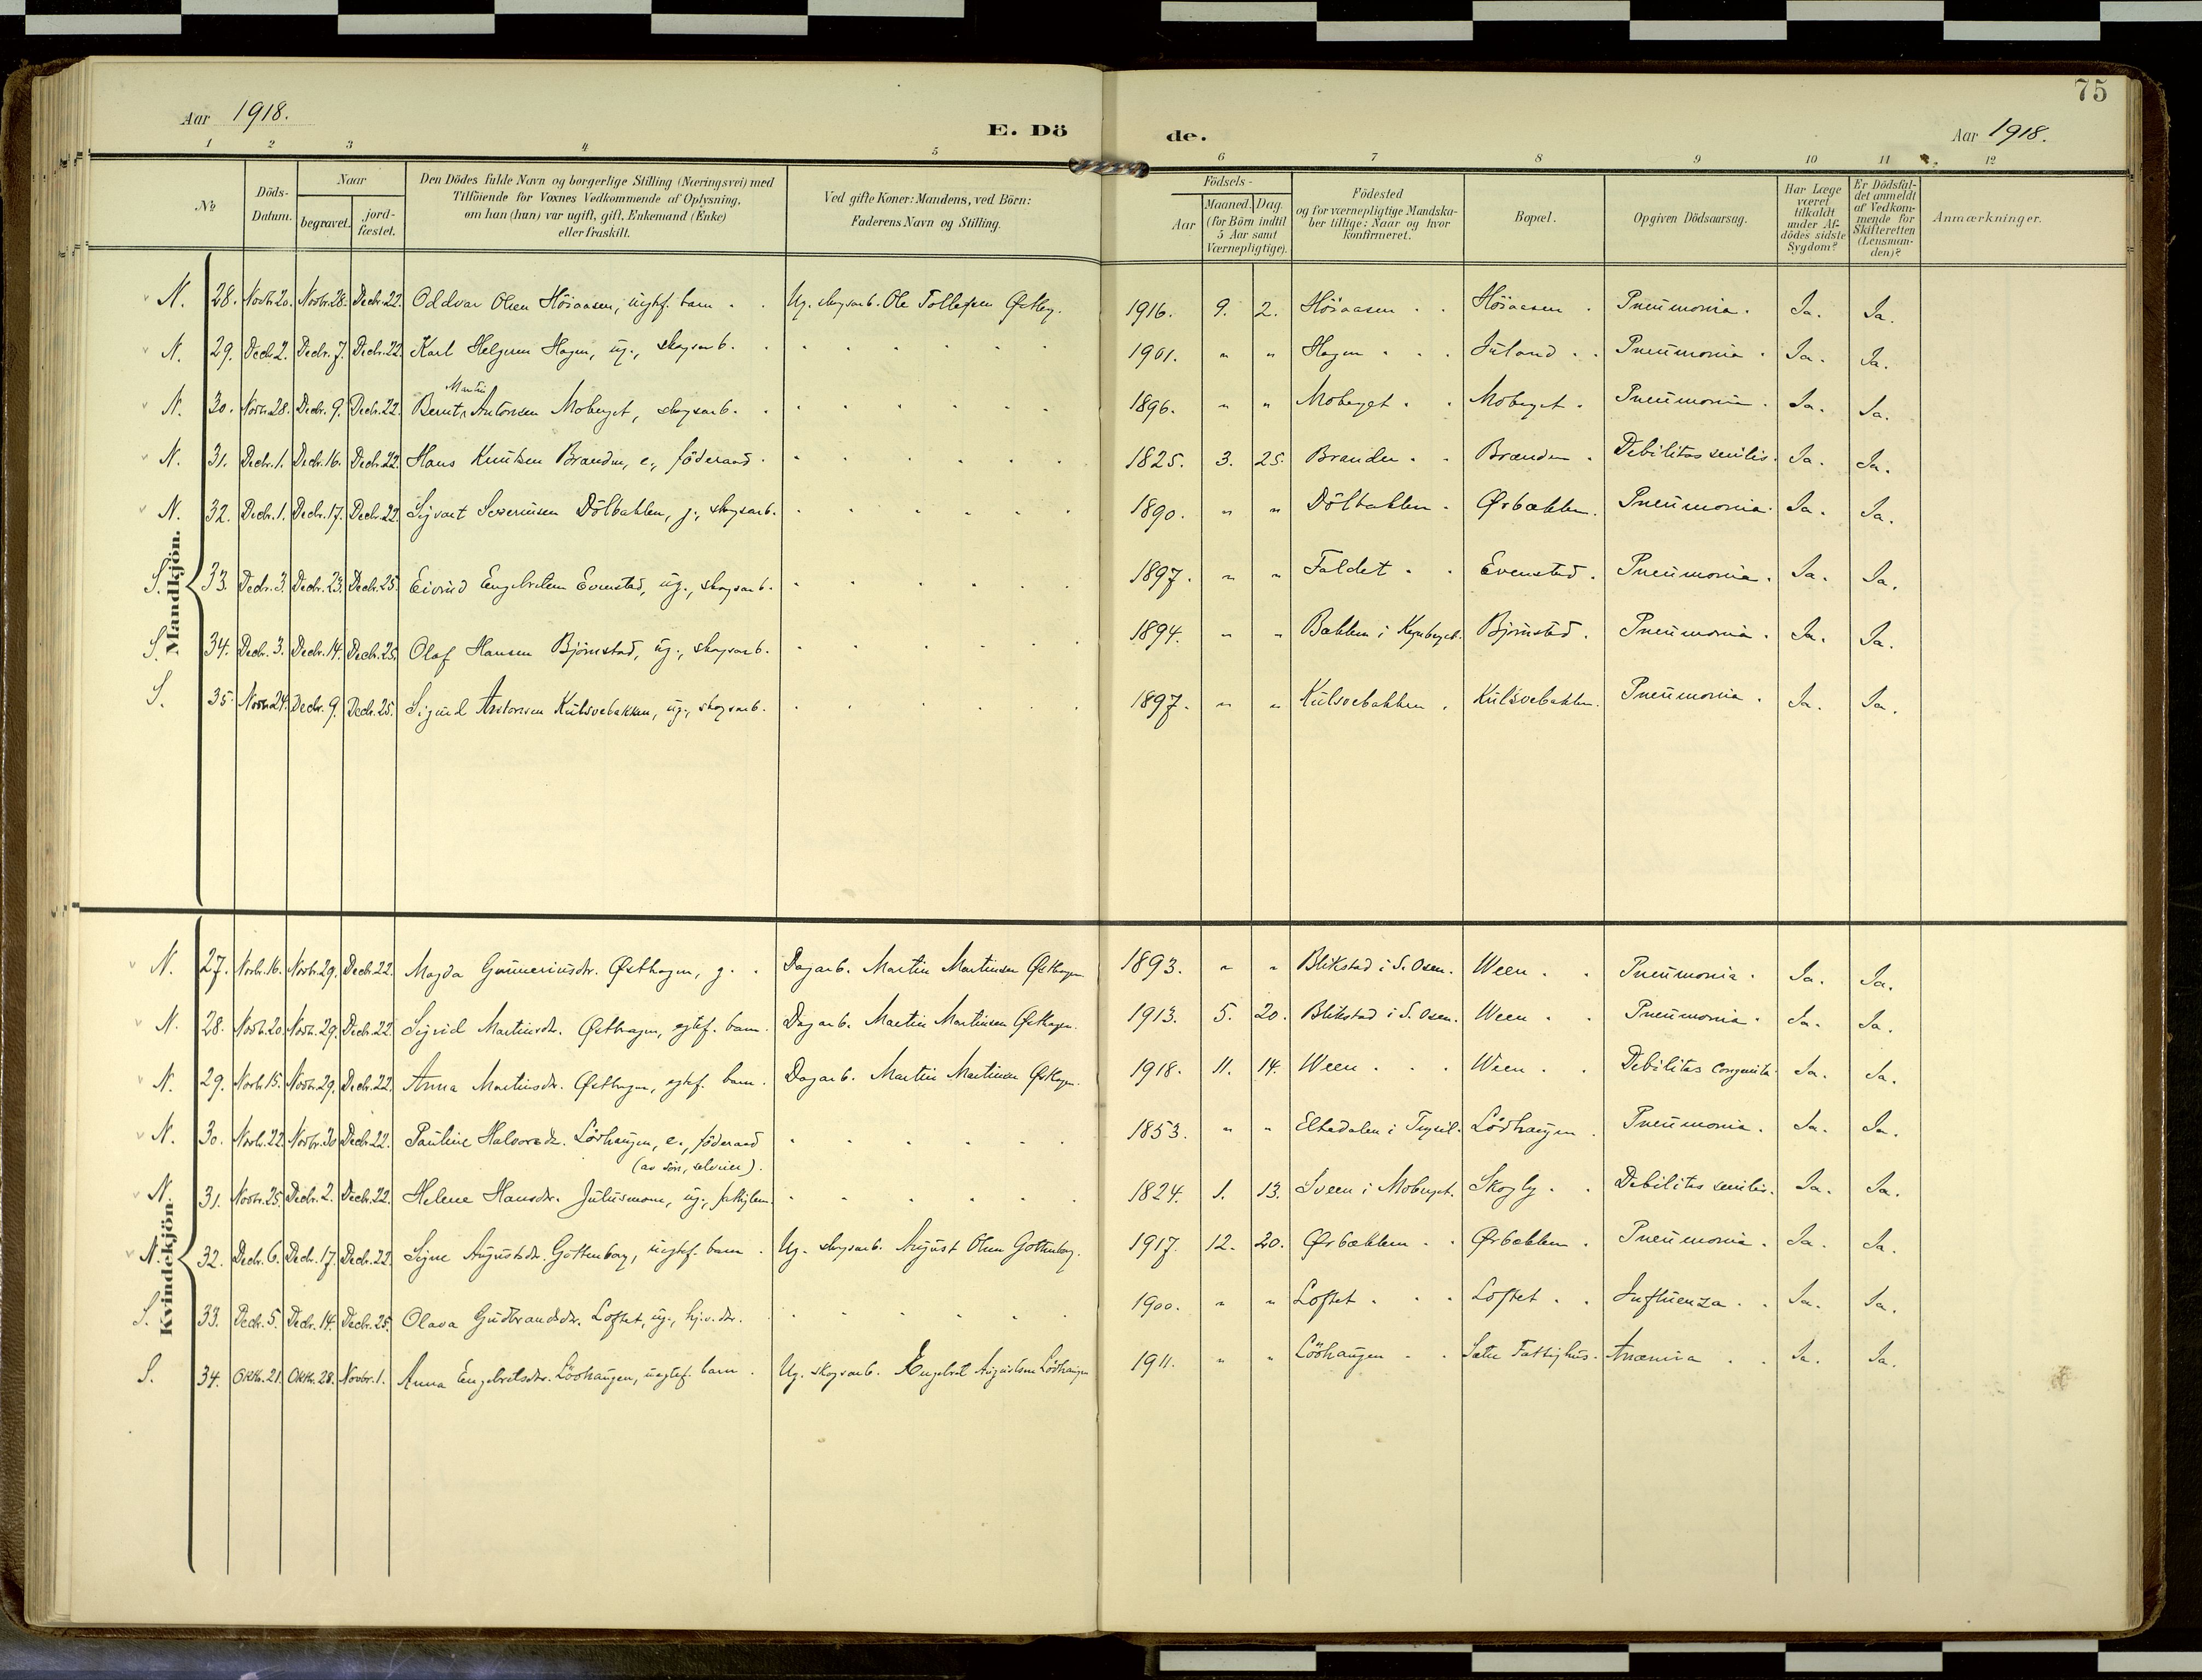 75
Aar 1918.
E. Dö de.
Aar 1918.
1 2 3 4 5 6 7 8 9 10 11 12
No
Döds-Datum.
Naar
begravet.
jord-fæstet.
Den Dödes fulde Navn og borgerlige Stilling (Næringsvei) med
Tilföiende for Voxnes Vedkommende af Oplysning,
om han (hun) var ugift, gift, Enkemand (Enke)
eller fraskilt.
Ved gifte Koner: Mandens, ved Börn:
Faderens Navn og Stilling.
Födsels-
Aar
Maaned. Dag.
(for Börn indtil
5 Aar samt
Værnepligtige).
Födested
og for værnepligtige Mandska-
ber tillige: Naar og hvor
konfirmeret.
Bopæl.
Opgiven Dödsaarsag.
Har Læge
været
tilkaldt
under Af-
dödes sidste
Sygdom?
Er Dödsfal-
det anmeldt
af Vedkom-
mende for
Skifteretten
(Lensman-
den)?
Anmærkninger.
Mandkjön.
N. 28. Novbr. 20. Novbr. 28. Decbr. 22. Oddvar Olsen Höiaasen, uegtef. barn . . Ug. skogsarb. Ole Tollefsen Østby. 1916. 9. 2. Höiaasen . . Höiaasen . Pneumonia. Ja. Ja.
N. 29. Decbr. 2. Decbr. 7. Decbr. 22. Karl Helgesen Hagen, ug., skogsarb. 1901. " " Hagen . . . Juland . . Pneumonia . Ja. Ja.
Martin
N. 30. Novbr. 28. Decbr. 9. Decbr. 22. Bernt Antonsen Moberget, skogsarb. 1896. " " Moberget . . Moberget . Pneumonia . Ja. Ja.
N. 31. Decbr. 1. Decbr. 16. Decbr. 22. Hans Knutsen Branden, e., föderaad . 1825. 3. 25. Branden . . Branden . Debilitas senilis. Ja. Ja.
N. 32. Decbr. 1. Decbr. 17. Decbr. 22. Sigvart Severinsen Dölbakken, g., skogsarb. 1890. " " Dölbakken . Ørbækken. Pneumonia. Ja. Ja.
S. 33. Decbr. 3. Decbr. 23. Decbr. 25. Eivind Engebretsen Evenstad, ug., skogsarb. 1897. " " Faldet . . Evenstad . Pneumonia . Ja. Ja.
S. 34. Decbr. 3. Decbr. 14. Decbr. 25. Olaf Hansen Björnstad, ug., skogsarb. 1894. " " Bakken i Björnstad . Pneumonia . Ja. Ja.
S. 35. Novbr. 24. Decbr. 9. Decbr. 25. Sigurd Antonsen Kulsvebakken, ug., skogsarb. 1897. " " Kulsvebakken . Kulsvebakken. Pneumonia . Ja. Ja.
Kvindekjön.
N. 27. Novbr. 16. Novbr. 29. Decbr. 22. Magda Gunneriusdtr. Østhagen, g. . Dagarb. Martin Martinsen Østhagen 1893. " " Blikstad i S. Osen. Ween . . Pneumonia . Ja. Ja.
N. 28. Novbr. 20. Novbr. 29. Decbr. 22. Sigrid Martinsdtr. Østhagen, egtef. barn. Dagarb. Martin Martinsen Østhagen. 1913. 5. 20. Blikstad i S. Osen. Ween . . Pneumonia . Ja. Ja.
N. 29. Novbr. 15. Novbr. 29. Decbr. 22. Anna Martinsdtr. Østhagen, egtef. barn. Dagarb. Martin Martinsen Østhagen. 1918. 11. 14. Ween . . . Ween . . Debilitas congenita. Ja. Ja.
N. 30. Novbr. 22. Novbr. 30 Decbr. 22. Pauline Halvorsdtr. Lövhaugen, e., föderaad 1853. " " Eltedalen i Trysil. Lövhaugen . Pneumonia . Ja. Ja.
(av sön, selveier).
N. 31. Novbr. 25. Decbr. 2. Decbr. 22. Helene Hansdtr. Julusmoen, ug., fattiglem. 1824. 1. 13. Sveen i Moberget. Skogly . . Debilitas senilis. Ja. Ja.
N. 32. Decbr. 6. Decbr. 17. Decbr. 22. Signe Augustsdtr. Gottenborg, uegtef. barn . Ug. skogsarb. August Olsen Gottenborg. 1917. 12. 20. Ørbækken . . Ørbækken . Pneumonia . Ja. Ja.
S. 33. Decbr. 5. Decbr. 14. Decbr. 25. Olava Gudbrandsdtr. Loftet, ug., hj.v. dtr. 1900. " " Loftet . . . Loftet . . Influenza . . Ja. Ja.
S. 34. Oktbr. 21. Oktbr. 28. Novbr. 1. Anna Engebretsdtr. Lövhaugen, uegtef. barn . Ug. skogsarb. Engebret Augustsen Lövhaugen 1911. " " Lövhaugen . . Fattighus. Anæmia . . Ja. Ja.